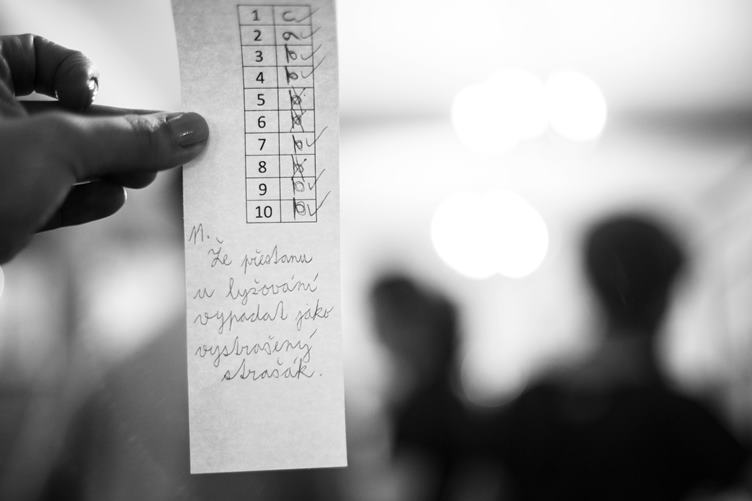 1 c
2 a
3 b
4 b
5 b
6 b
7 b
8 b
9 a
10 b
11.
Že přestanu
u lyžování
vypadat jako
vystrašený
strašák.